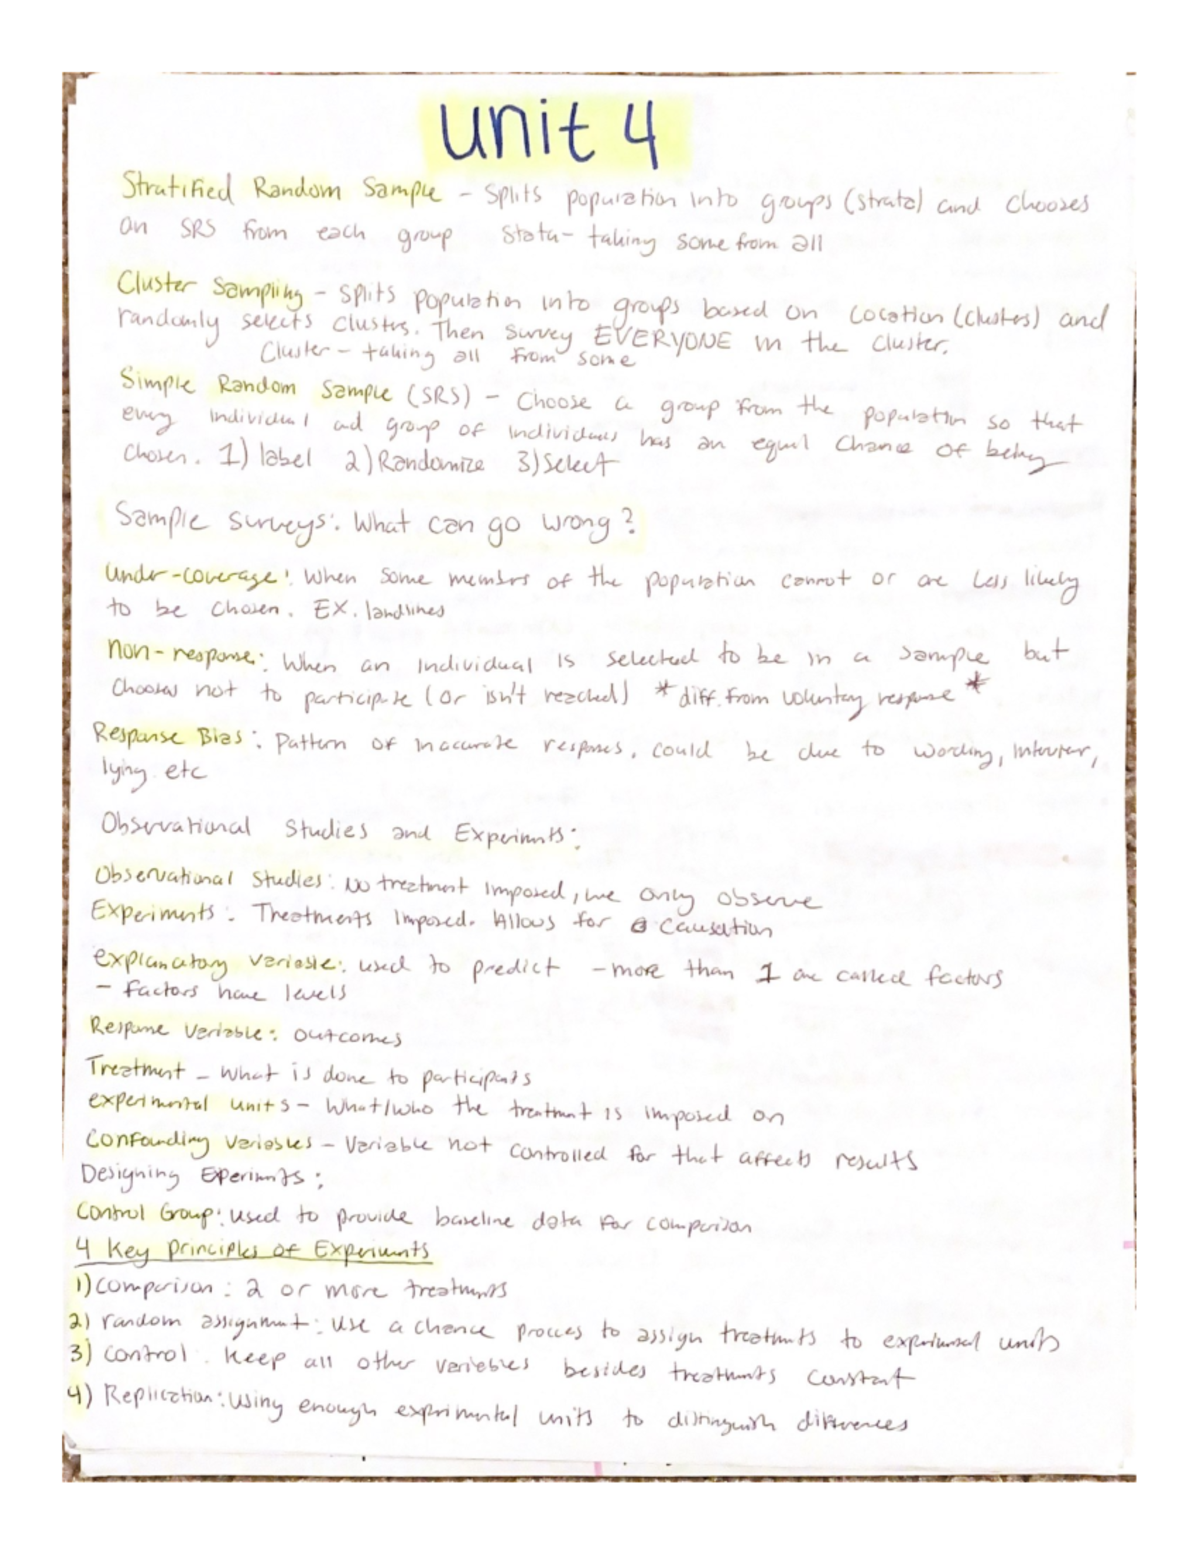 unit 4
Stratified Random Sample - Splits population into groups (strata) and chooses
an SRS from each group Stata- taking some from all
Cluster Sampling - splits population into groups based on Location (clusters) and
randomly selects clusters. Then survey EVERYONE in the cluster.
Cluster - taking all from some
Simple Random Sample (SRS) - Choose a group from the population so that
every individual ad group of individuals has an equal chance of being
chosen. 1) label 2) Randomize 3) Select
Sample surveys: What can go wrong?
Under-coverage: When some members of the population cannot or are less likely
to be chosen. EX. landlines
Non-response: When an individual is selected to be in a sample but
chooses not to participate (or isn't reached) *diff. from voluntary response*
Response Bias: pattern of inaccurate responses, could be due to wording, interviewer,
lying etc
Observational Studies and Experiments:
Observational Studies: No treatment imposed, we only observe
Experiments: Treatments imposed. Allows for causation
explanatory variable: used to predict - more than 1 are called factors
- factors have levels
Response Variable: outcomes
Treatment - What is done to participants
experimental units - What/who the treatment is imposed on
Confounding variables - Variable not controlled for that affects results
Designing Experiments:
Control Group: used to provide baseline data for comparison
4 Key principles of Experiments
1) Comparison: 2 or more treatments
2) random assignment: Use a chance process to assign treatments to experimental units
3) control. Keep all other variables besides treatments constant
4) Replication: Using enough experimental units to distinguish differences